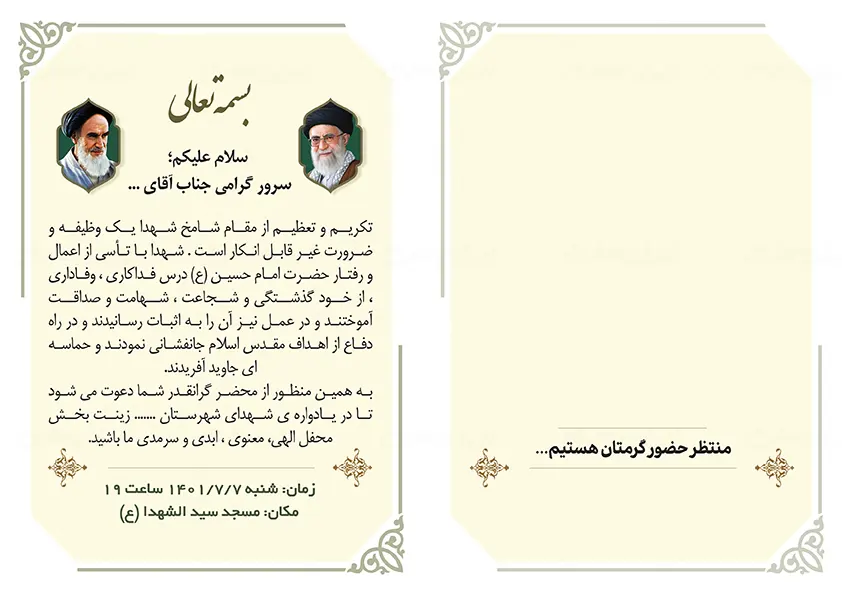 بسمه تعالی
سلام علیکم؛
سرور گرامی جناب آقای ...
تکریم و تعظیم از مقام شامخ شهدا یک وظیفه و
ضرورت غیر قابل انکار است . شهدا با تأسی از اعمال
و رفتار حضرت امام حسین (ع) درس فداکاری ، وفاداری
، از خود گذشتگی و شجاعت ، شهامت و صداقت
آموختند و در عمل نیز آن را به اثبات رسانیدند و در راه
دفاع از اهداف مقدس اسلام جانفشانی نمودند و حماسه
ای جاوید آفریدند.
به همین منظور از محضر گرانقدر شما دعوت می شود
تا در یادواره ی شهدای شهرستان ....... زینت بخش
محفل الهی، معنوی ، ابدی و سرمدی ما باشید.
زمان: شنبه ۱۴۰۱/۷/۷ ساعت ۱۹
مکان: مسجد سید الشهدا (ع)
منتظر حضور گرمتان هستیم...